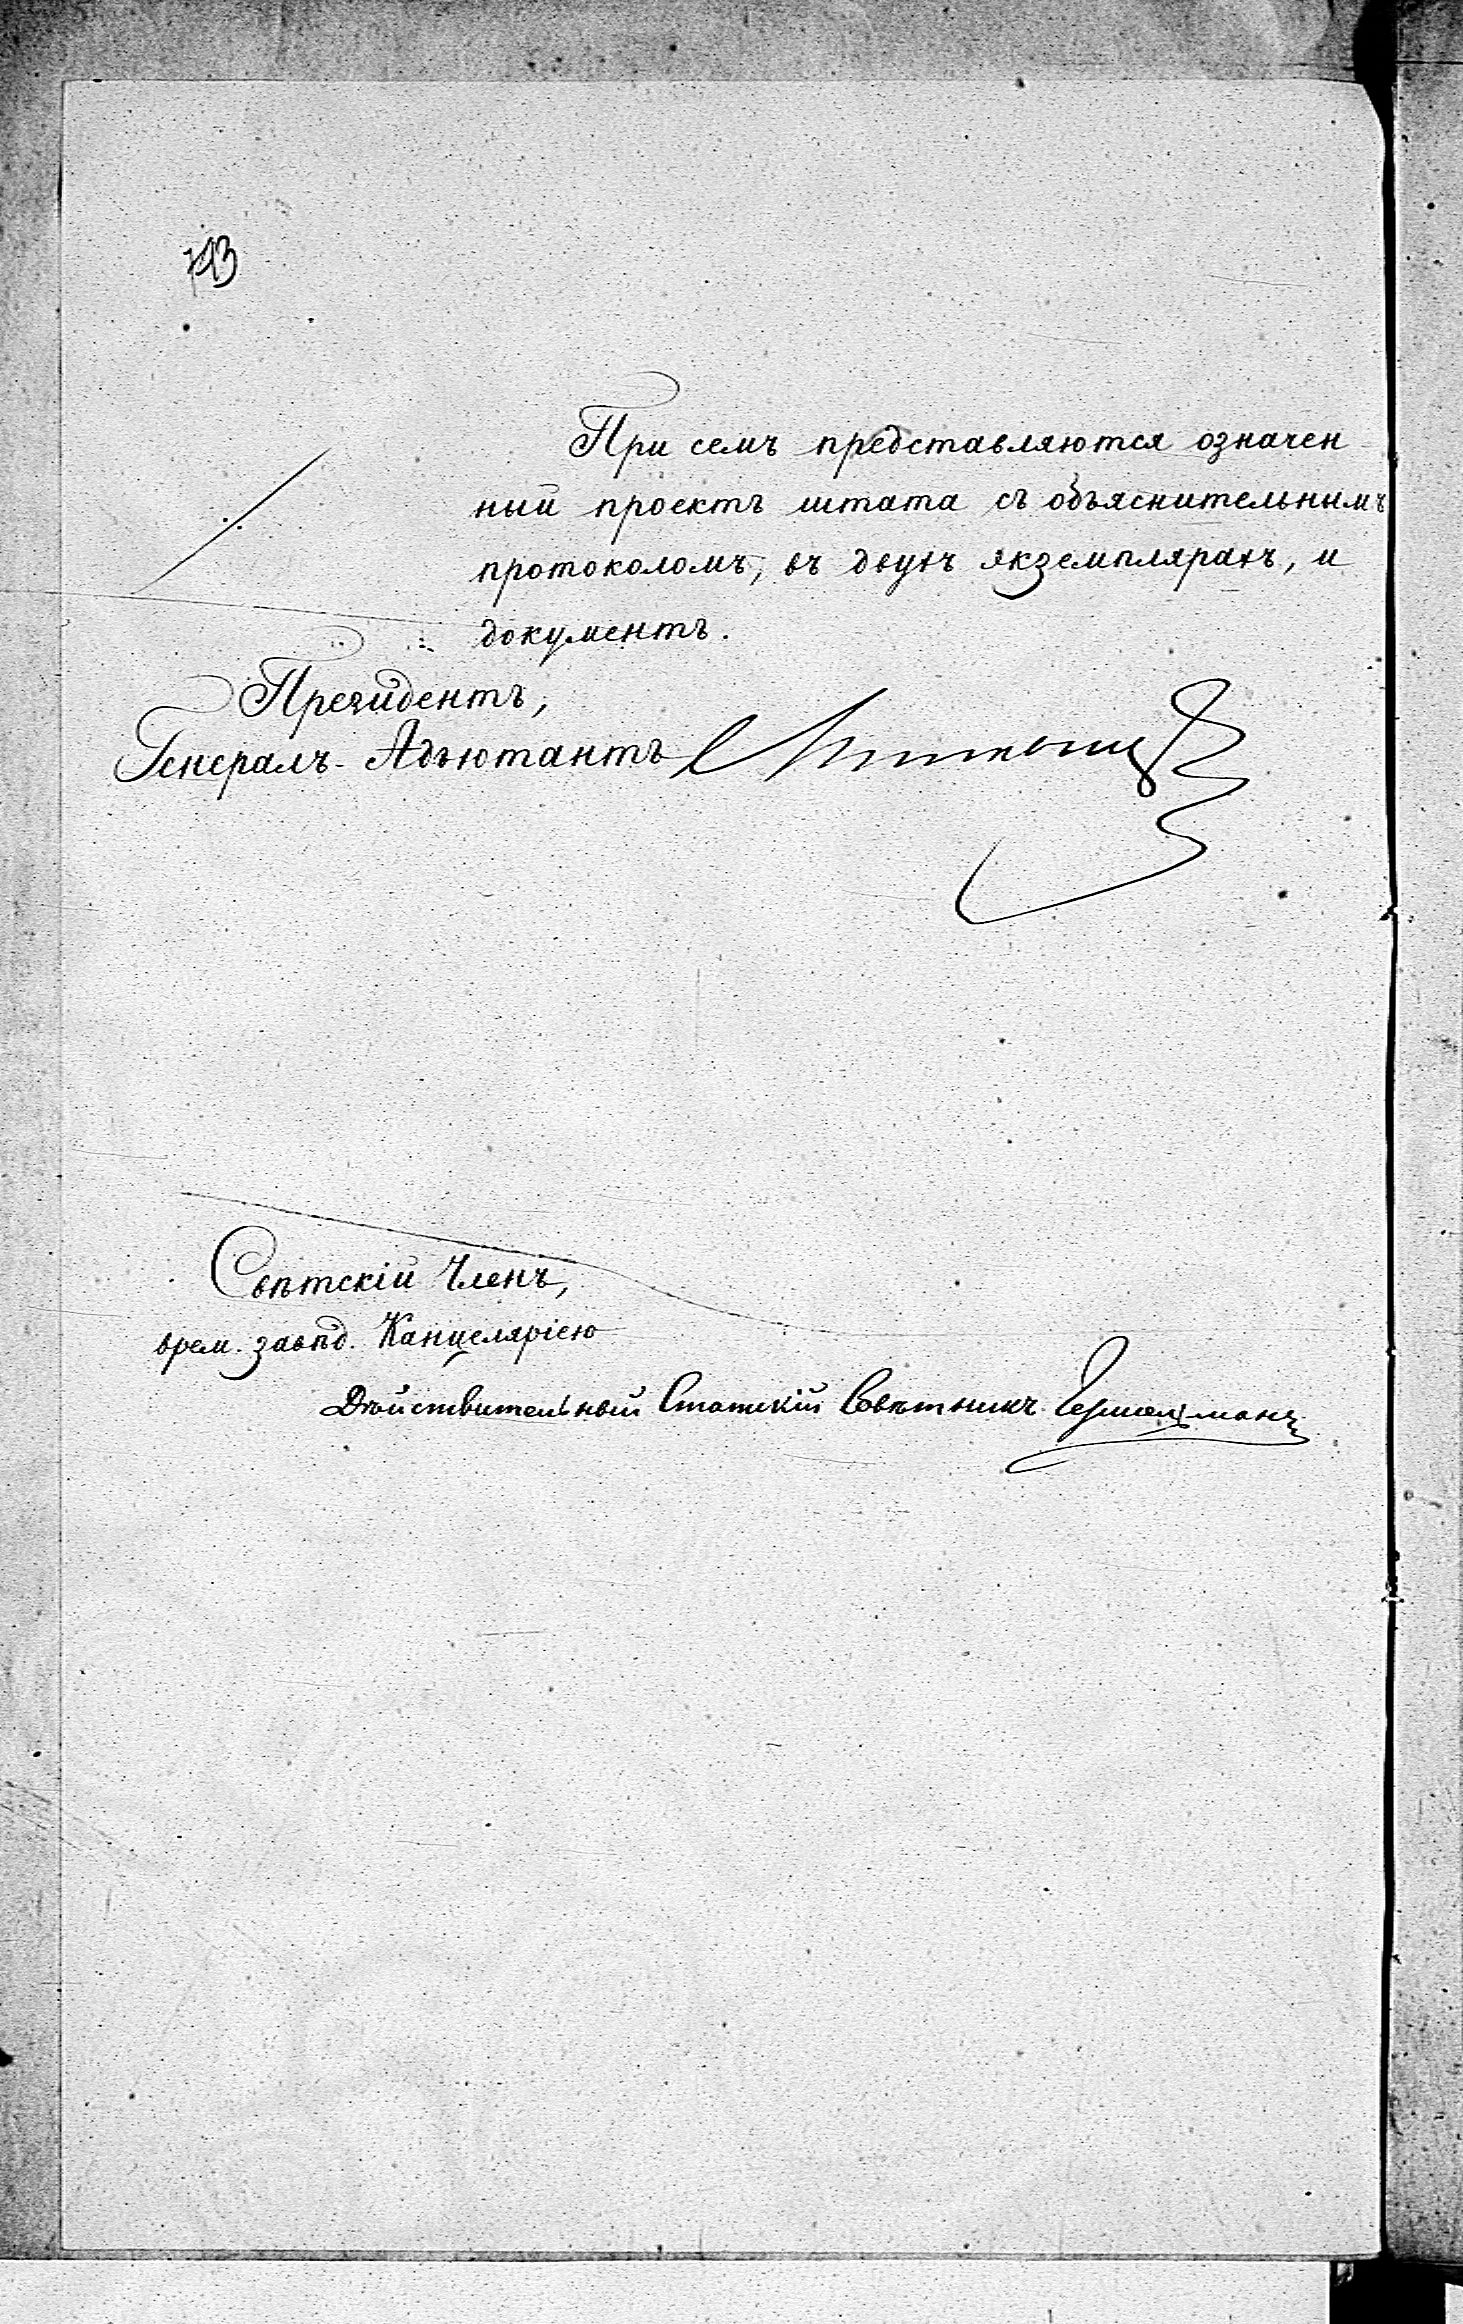 При семъ представляются означен
ный проектъ штата съ объяснительнымъ
протоколомъ, въ двухъ экземплярахъ, и
документъ.
Президентъ,
Генералъ-Адъютантъ
Свѣтскій Членъ,
врем. завѣд. Канцелярiею
Дѣйствительный Статскій Совѣтникъ